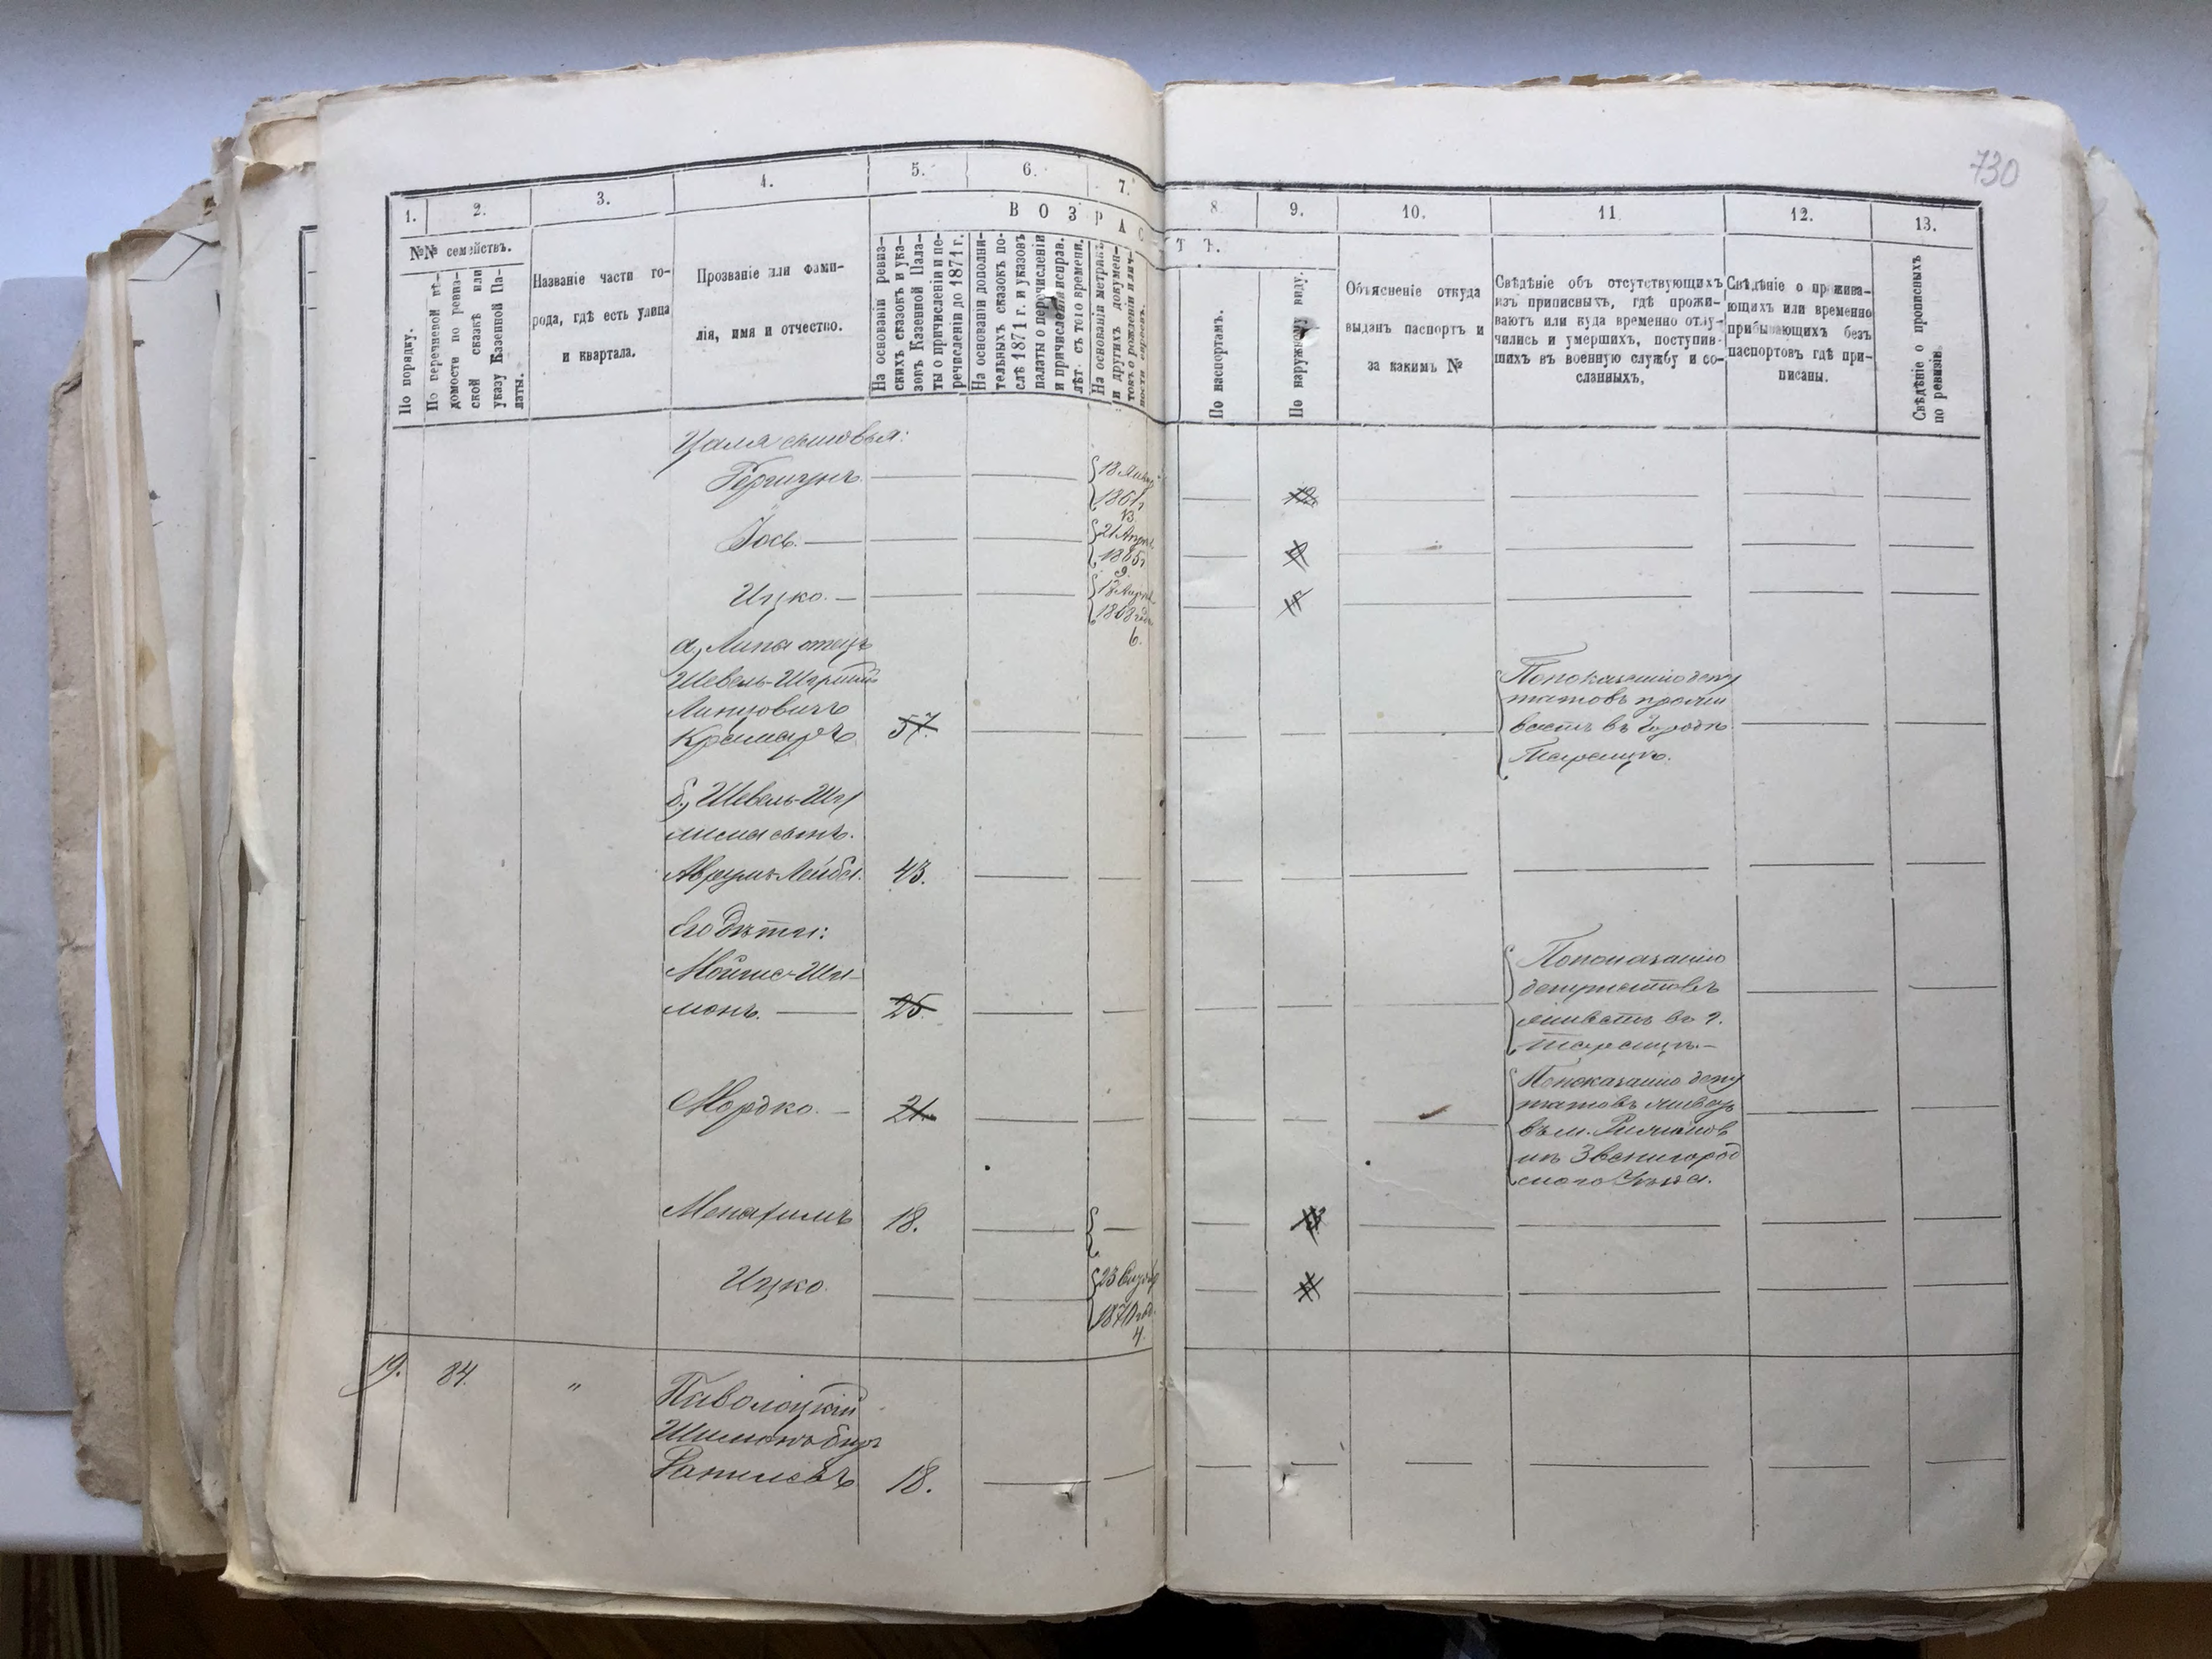 730
1.
2.
3.
4.
5.
6.
7.
8.
9.
10.
11.
12.
13.
ВОЗРАСТЪ.
№№ семействъ.
По порядку.
По перечневой вѣ-
домости по ревиз-
ской сказкѣ или
указу Казенной Па-
латы.
Названіе части го-
рода, гдѣ есть улица
и квартала.
Прозваніе или фами-
лія, имя и отчество.
На основаніи ревиз-
скихъ сказокъ и ука-
зовъ Казенной Пала-
ты о причисленіи и пе-
речисленіи до 1871 г.
На основаніи дополни-
тельныхъ сказокъ по-
слѣ 1871 г. и указовъ
палаты о перечисленіи
и причисленіи исправ.
лѣт. съ того времени.
На основаніи метрикъ
и другихъ докумен-
товъ о рожденіи и лич-
ности евреевъ.
По паспортамъ.
По наружному виду.
Объясненіе откуда
выданъ паспортъ и
за какимъ №
Свѣдѣніе объ отсутствующихъ
изъ приписныхъ, гдѣ прожи-
ваютъ или куда временно отлу-
чились и умершихъ, поступив-
шихъ въ военную службу и со-
сланныхъ.
Свѣдѣніе о прожива-
ющихъ или временно
прибывающихъ безъ
паспортовъ гдѣ при-
писаны.
Свѣдѣніе о прописныхъ
по ревизіи.
Цаля сыновья:
18
1861
13
Іось.
21 Апрѣ
1865
9.
Ицко.
1868 год
6.
а, Липа отецъ
Шевель-
Липовичъ
Крамаръ
57.
По показанію депу
татовъ прожи
ваетъ въ городѣ
Таращѣ.
б, Шевель-
сынъ.
Аврумъ Лейба.
43.
Его дѣти:
Мойше-Ши-
монъ.
25
По показанію
депутатовъ
живетъ въ г.
Таращѣ.
Мордко.
21.
По показанію депу
татовъ живетъ
въ м.
Звенигород
скаго Уѣзда.
Менахимъ
18.
Ицко.
23
1870 год
4.
19.
84.
"
Паволоцкій
Шимонъ
18.